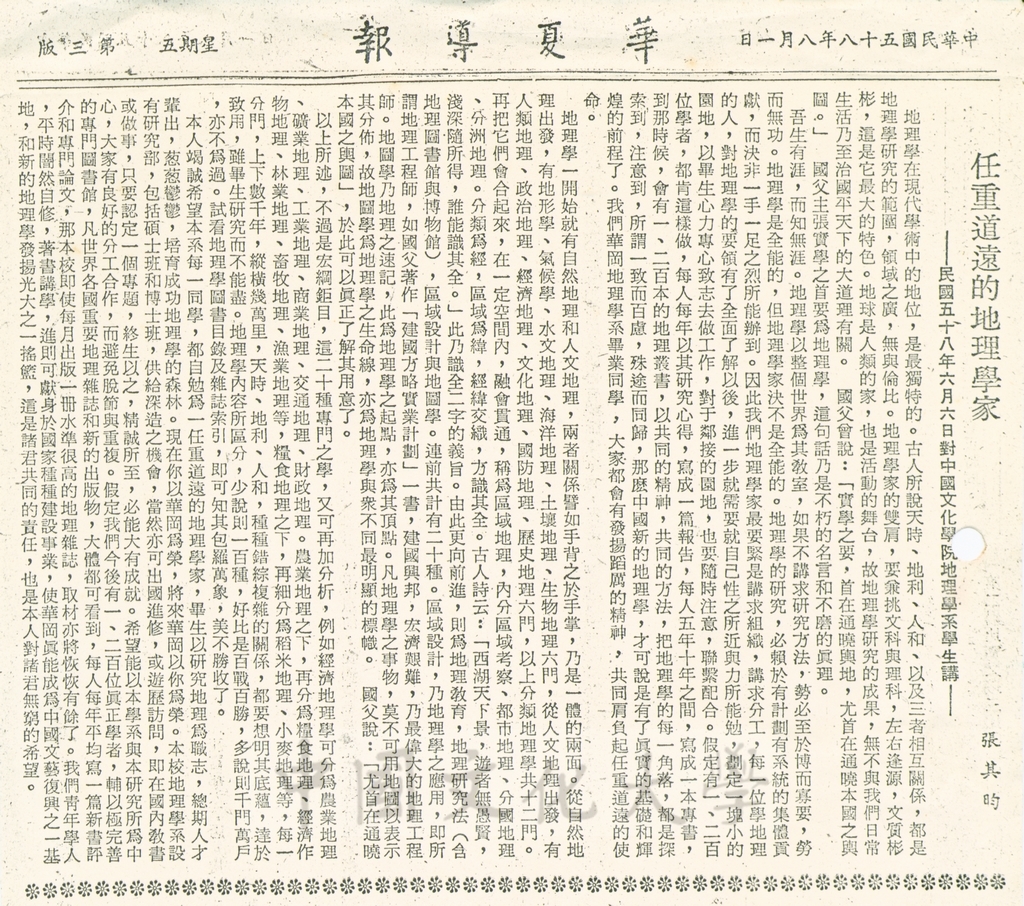 中華民國五十八年八月一日
華夏導報
星期五
第三版
任重道遠的地理學家
——民國五十八年六月六日對中國文化學院地理學系學生講——
張其昀
地理學在現代學術中的地位，是最獨特的。古人所說天時、地利、人和、以及三者相互關係，都是
地理學研究的範圍，領域之廣，無與倫比。地理學家的雙肩，要兼挑文科與理科，左右逢源，文質彬
彬，這是它最大的特色。地球是人類的家，也是活動的舞台，故地理學研究的成果，無不與我們日常
生活乃至治國平天下的大道理有關。　國父曾說：「實學之要，首在通曉輿地，尤首在通曉本國之輿
圖。」　國父主張實學之首要為地理學，這句話乃是不朽的名言和不磨的真理。
吾生有涯，而知無涯。地理學以整個世界為其教室，如果不講求研究方法，勢必至於博而寡要，勞
而無功。地理學是全能的，但地理學家決不是全能的。地理學的研究，必賴於有計劃有系統的集體貢
獻，而決非一手一足之烈所能辦到。因此我們地理學家最要緊是講求組織，講求分工，每一位學地理
的人，對地理學的要領有了全面了解以後，進一步就需要就自己性之所近與力所能勉，劃定一塊小的
園地，以畢生心力專心致志去做工作，對于鄰接的園地，也要隨時注意，聯繫配合。假定有一、二百
位學者，都肯這樣做，每人每年以其研究心得，寫成一篇報告，每人五年十年之間，寫成一本專書，
到那時候，會有一、二百本的地理叢書，以共同的精神，共同的方法，把地理學的每一角落，都是探
索到，注意到，所謂一致而百慮，殊途而同歸，那麼中國新的地理學，才可說是有了真實的基礎和輝
煌的前程了。我們華岡地理學系畢業同學，大家都會有發揚蹈厲的精神，共同肩負起任重道遠的使
命。
地理學一開始就有自然地理和人文地理，兩者關係譬如手背之於手掌，乃是一體的兩面，從自然地
理出發，有地形學、氣候學、水文地理、海洋地理、土壤地理、生物地理六門，從人文地理出發，有
人類地理、政治地理、經濟地理、文化地理、國防地理、歷史地理六門，以上分類地理學共十二門。
再把它們會合起來，在一定空間內，融會貫通，稱為區域地理，內分區域考察、都市地理、分國地理
、分洲地理。分類為經，區域為緯，經緯交織，方識其全。古人詩云：「西湖天下景，遊者無愚賢，
淺深隨所得，誰能識其全。」此乃識全二字的義旨。由此更向前進，則為地理教育，地理研究法（含
地理圖書館與博物館），區域設計與地圖學。連前共計有二十種。區域設計，乃地理學之應用，即所
謂地理工程師，如國父著作「建國方略實業計劃」一書，建國興邦，宏濟艱難，乃最偉大的地理工程
師。地圖學乃地理之速記，此為地理學之起點，亦為其頂點。凡地理學之事物，莫不可用地圖以表示
其分佈，故地圖學為地理學之生命線，亦為地理學與衆不同最明顯的標幟。　國父說：「尤首在通曉
本國之輿圖」，於此可以真正了解其用意了。
以上所述，不過是宏綱鉅目，這二十種專門之學，又可再加分析，例如經濟地理學可分為農業地理
、礦業地理、工業地理、商業地理、交通地理、財政地理。農業地理之下，再分為糧食地理、經濟作
物地理、林業地理、畜牧地理、漁業地理等，糧食地理之下，再細分為稻米地理、小麥地理等，每一
分門，上下數千年，縱橫幾萬里，天時、地利、人和，種種錯綜複雜的關係，都要想明其底蘊，達於
致用，雖畢生研究而不能盡。地理學內容所區分，少說則一百種，好比是百戰百勝，多說則千門萬戶
，亦不為過。試看地理學圖書目錄及雜誌索引，即可知其包羅萬象，美不勝收了。
本人竭誠希望本系每一同學，都自勉為一任重道遠的地理學家，畢生以研究地理為職志，總期人才
輩出，葱葱鬱鬱，培育成功地理學的森林。現在你以華岡為榮，將來華岡以你為榮。本校地理學系設
有研究部，包括碩士班和博士班，供給深造之機會，當然亦可出國進修，或遊歷訪問，即在國內教書
或做事，只要認定一個專題，終生以之，精誠所至，必能大有成就。希望能以本學系與本研究所為中
心，大家有良好的分工合作，而避免脫節與重複。假定我們今後有一、二百位真正學者，輔以極完善
的專門圖書館，凡世界各國重要地理雜誌和新的出版物，大體都可看到，每人每年平均寫一篇新書評
介和專門論文，那本校即使每月出版一冊水準很高的地理雜誌，取材亦將恢恢有餘了。我們青年學人
，平時闇然自修，著書講學，進則可獻身於國家種種建設事業，使華岡真能成為中國文藝復興之一基
地，和新的地理學發揚光大之一搖籃，這是諸君共同的責任，也是本人對諸君無窮的希望。
中國文化大學